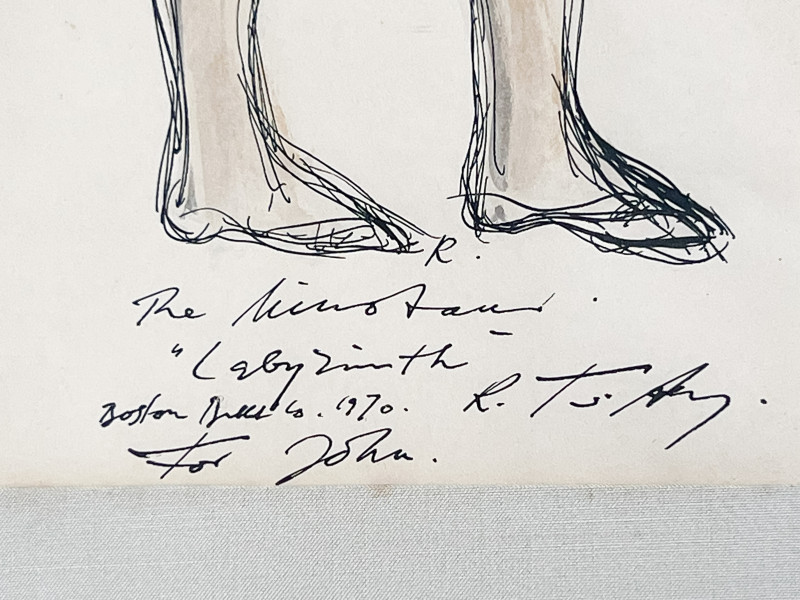 R.
The Minotaur.
"Labyrinth
Boston Ballet Co. 1970. R.
For John.